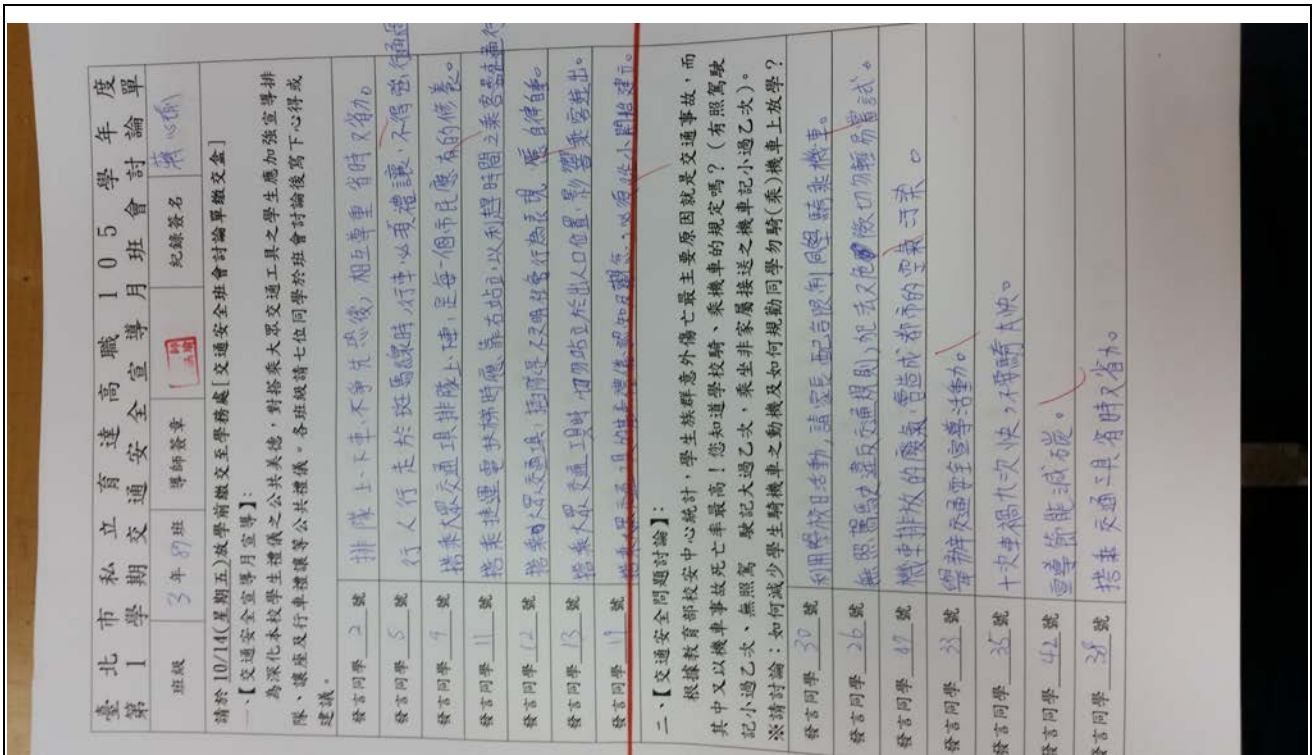 臺北市私立育達高職105學年度
第1學期交通安全宣導月班會討論單
班級 3年87班 導師簽章 紀錄簽名
請於10/14(星期五)放學前繳交至學務處[交通安全班會討論單繳交盒]
一、【交通安全宣導月宣導】:
為深化本校學生禮儀之公共美德,對搭乘大眾交通工具之學生應加強宣導排
隊、讓座及行車禮讓等公共禮儀。各班級請七位同學於班會討論後寫下心得或
建議。
發言同學 2 號 排隊上、下車,不爭先恐後,相互尊重省時又省力。
發言同學 5 號 行人行走於斑馬線時,行車必須禮讓,不得強行通過
發言同學 9 號 搭乘大眾交通工具排隊上下車,是每個市民應有的修養。
發言同學 11 號 搭乘捷運電扶梯時應靠右站立,以利趕時間之乘客通行
發言同學 12 號 搭乘大眾交通工具,插隊是不文明行為表現,應自律自重。
發言同學 13 號 搭乘大眾交通工具時,切勿站立於出入口位置,影響乘客進出。
發言同學 19 號 搭乘大眾交通工具的基本禮儀認知及觀念,必須從小開始建立。
二、【交通安全問題討論】:
根據教育部校安中心統計,學生族群意外傷亡最主要原因就是交通事故,而
其中又以機車事故死亡率最高!您知道學校騎、乘機車的規定嗎?(有照駕駛
記小過乙次、無照駕駛記大過乙次,乘坐非家屬接送之機車記小過乙次)。
※請討論:如何減少學生騎機車之動機及如何規勸同學勿騎(乘)機車上放學?
發言同學 30 號 利用學校日活動,請家長配合限制同學騎乘機車。
發言同學 26 號 無照駕駛違反交通規則,犯法又危險切勿輕易嘗試。
發言同學 號 機車排放的廢氣,會造成都市的空氣汙染。
發言同學 33 號 舉辦交通安全宣導活動。
發言同學 35 號 十次車禍九次快,不要騎太快。
發言同學 42 號 宣導節能減碳。
發言同學 38 號 搭乘交通工具省時又省力。